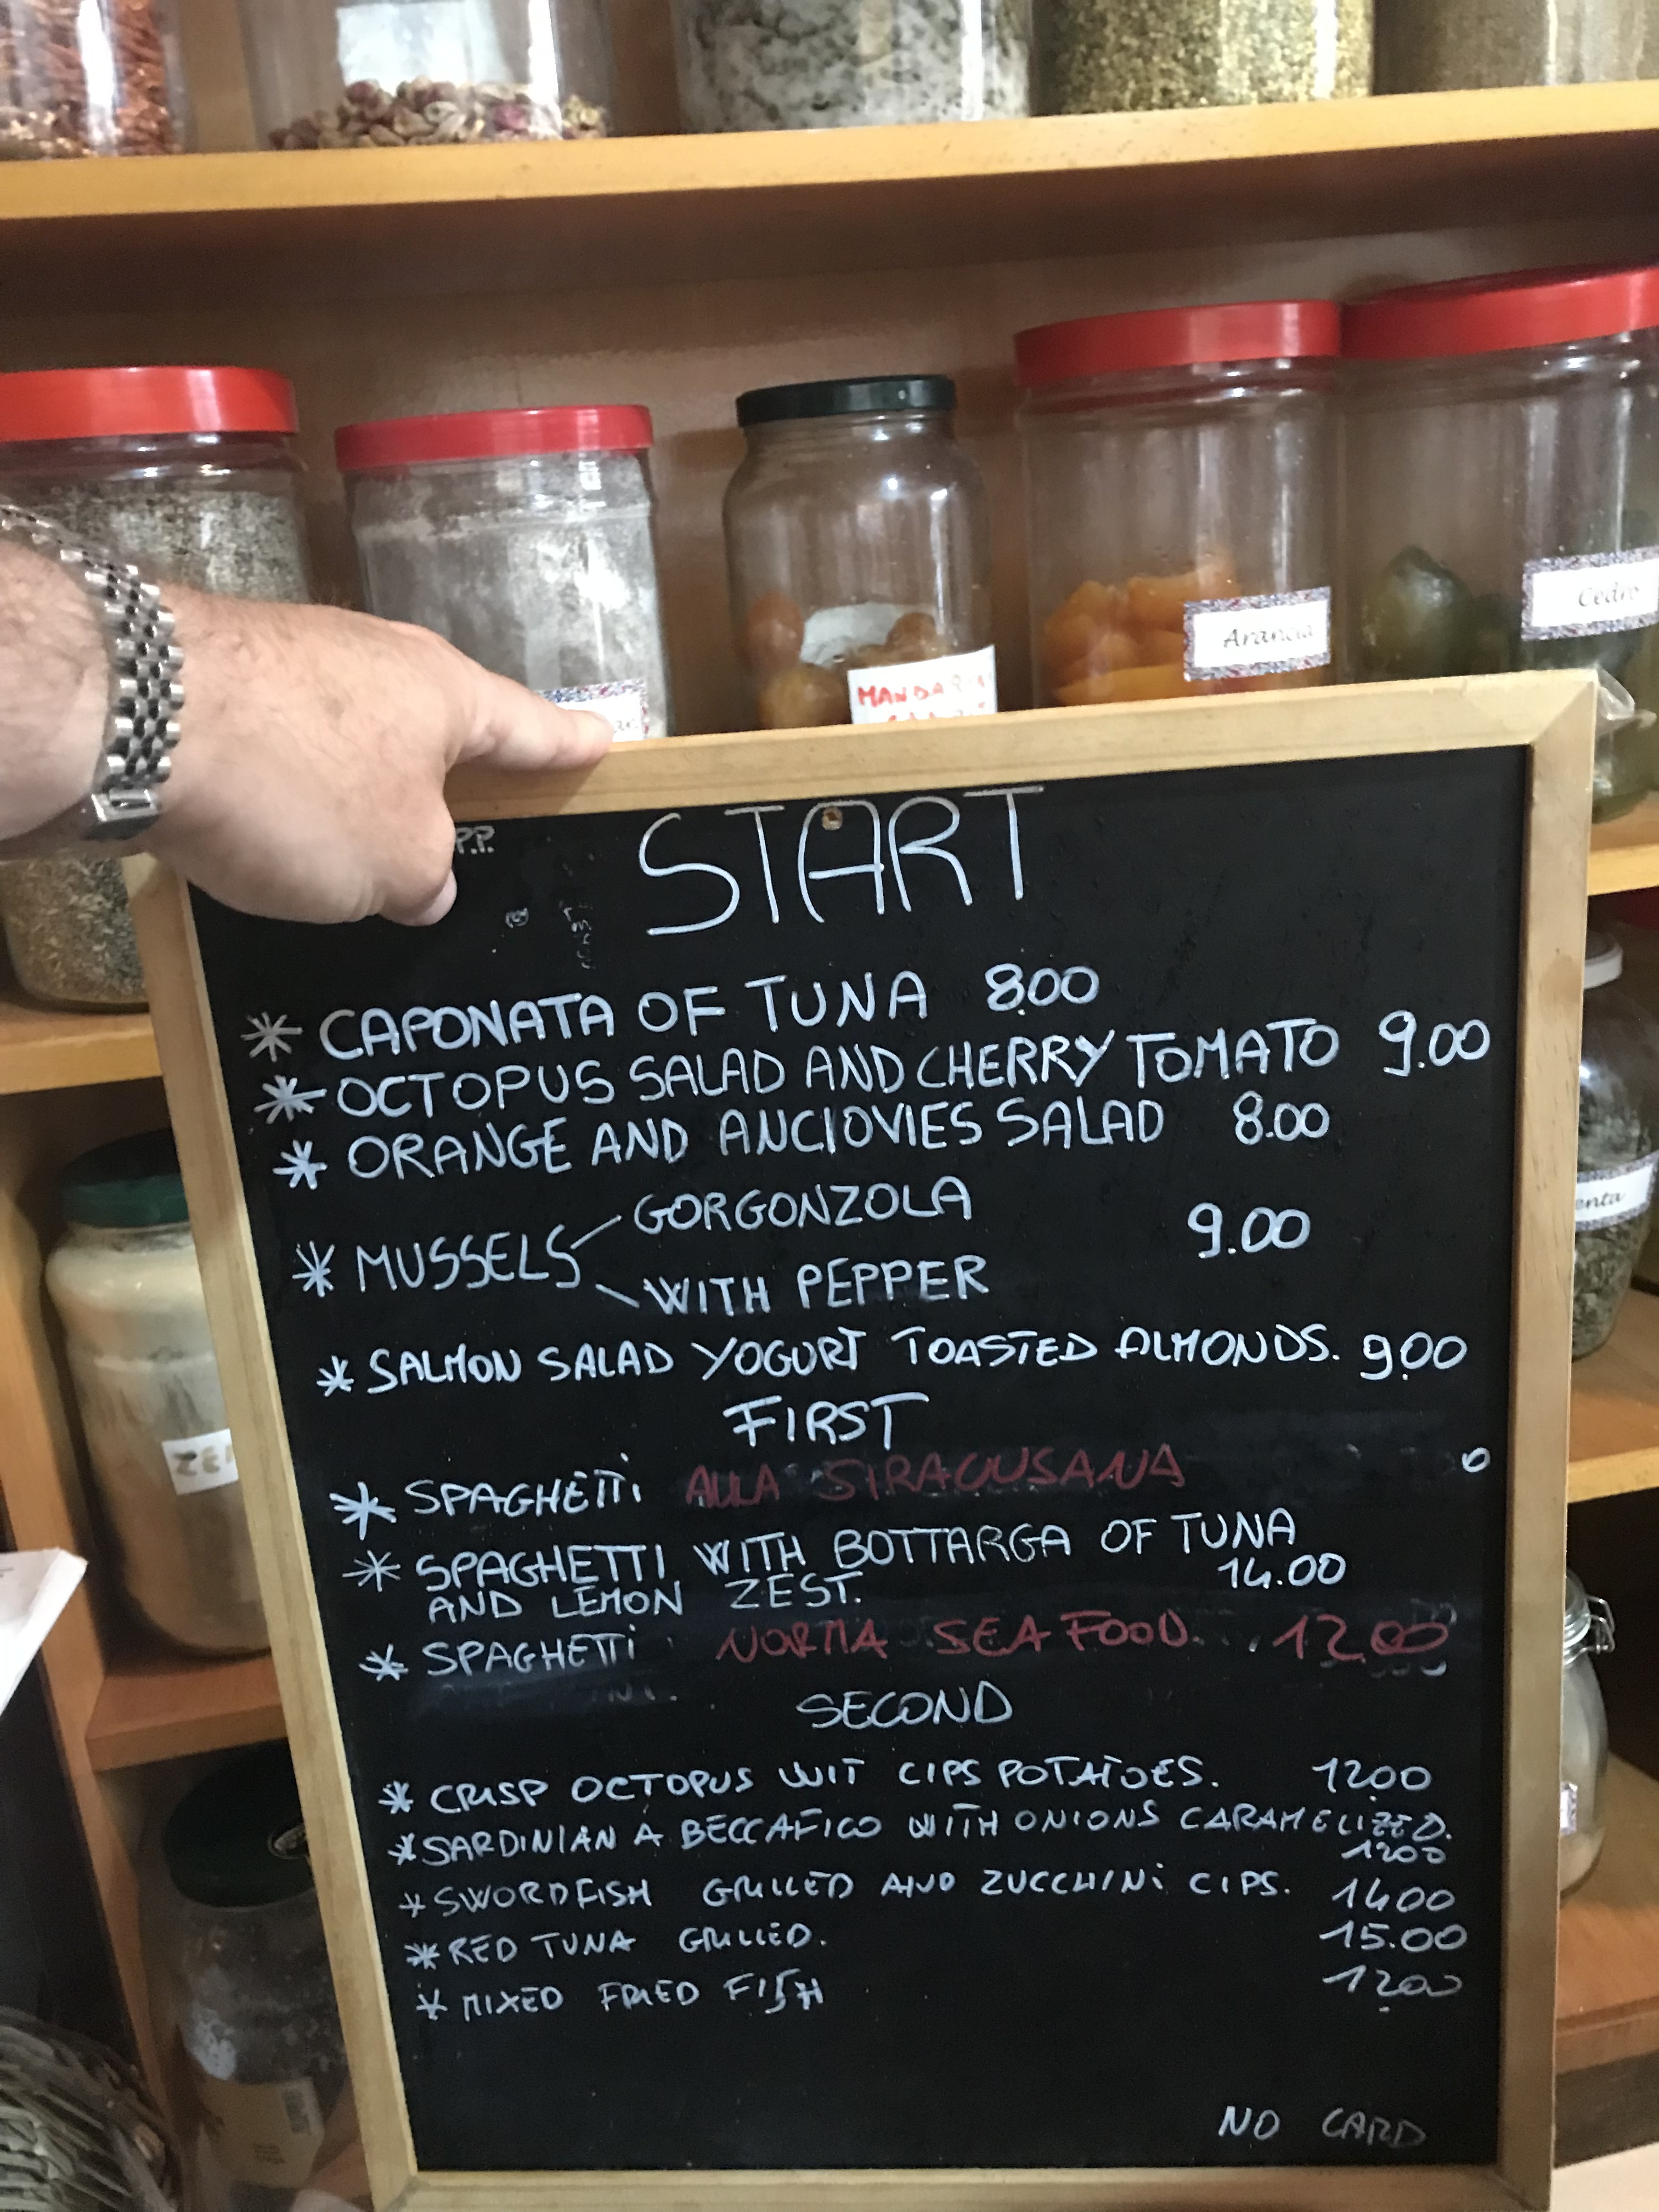 Arancia
Cedro
MANDARINI
P.P.
START
* CAPONATA OF TUNA 8.00
* OCTOPUS SALAD AND CHERRY TOMATO 9.00
* ORANGE AND ANCIOVIES SALAD 8.00
* MUSSELS GORGONZOLA
WITH PEPPER 9.00
* SALMON SALAD YOGURT TOASTED ALMONDS. 9.00
FIRST
* SPAGHETTI ALLA SIRACUSANA
* SPAGHETTI WITH BOTTARGA OF TUNA
AND LEMON ZEST. 14.00
* SPAGHETTI NORMA SEA FOOD. 12.00
SECOND
* CRISP OCTOPUS WIT CIPS POTATOES. 12.00
* SARDINIAN A BECCAFICO WITH ONIONS CARAMELIZED.
12.00
* SWORDFISH GRILLED AND ZUCCHINI CIPS. 14.00
* RED TUNA GRILLED. 15.00
* MIXED FRIED FISH 12.00
NO CARD
enta
ZE